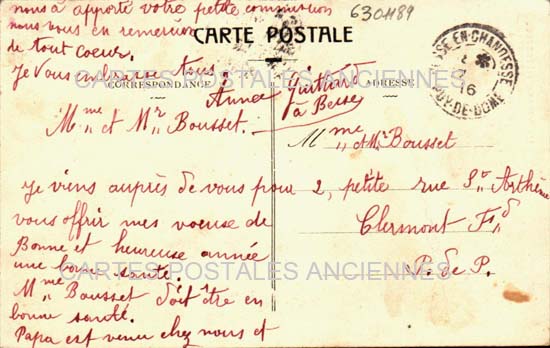 nous a apporté votre petite commission
nous vous en remercions
de tout coeur.
Je Vous embrasse tous.
Anna
Guittard
à Besse
6301189
CARTE POSTALE
CORRESPONDANCE
ADRESSE
BESSE-EN-CHANDESSE
16
PUY-DE-DOME
CARTES POSTALES ANCIENNES
Mme et Mr Bousset.
Je viens auprès de vous pour
vous offrir mes voeuse de
Bonne et heureuse année
une bonne santé.
Mme Bousset doit être en
bonne santé.
Papa est venu chez nous et
Mme et Mr Bousset
2, petite rue St Arthème
Clermont Fd
P. de P.
CARTES POSTALES ANCIENNES